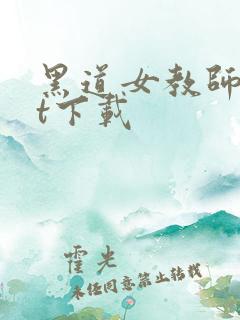 黑道女教師
t下載
霍光
未经同意禁止转载